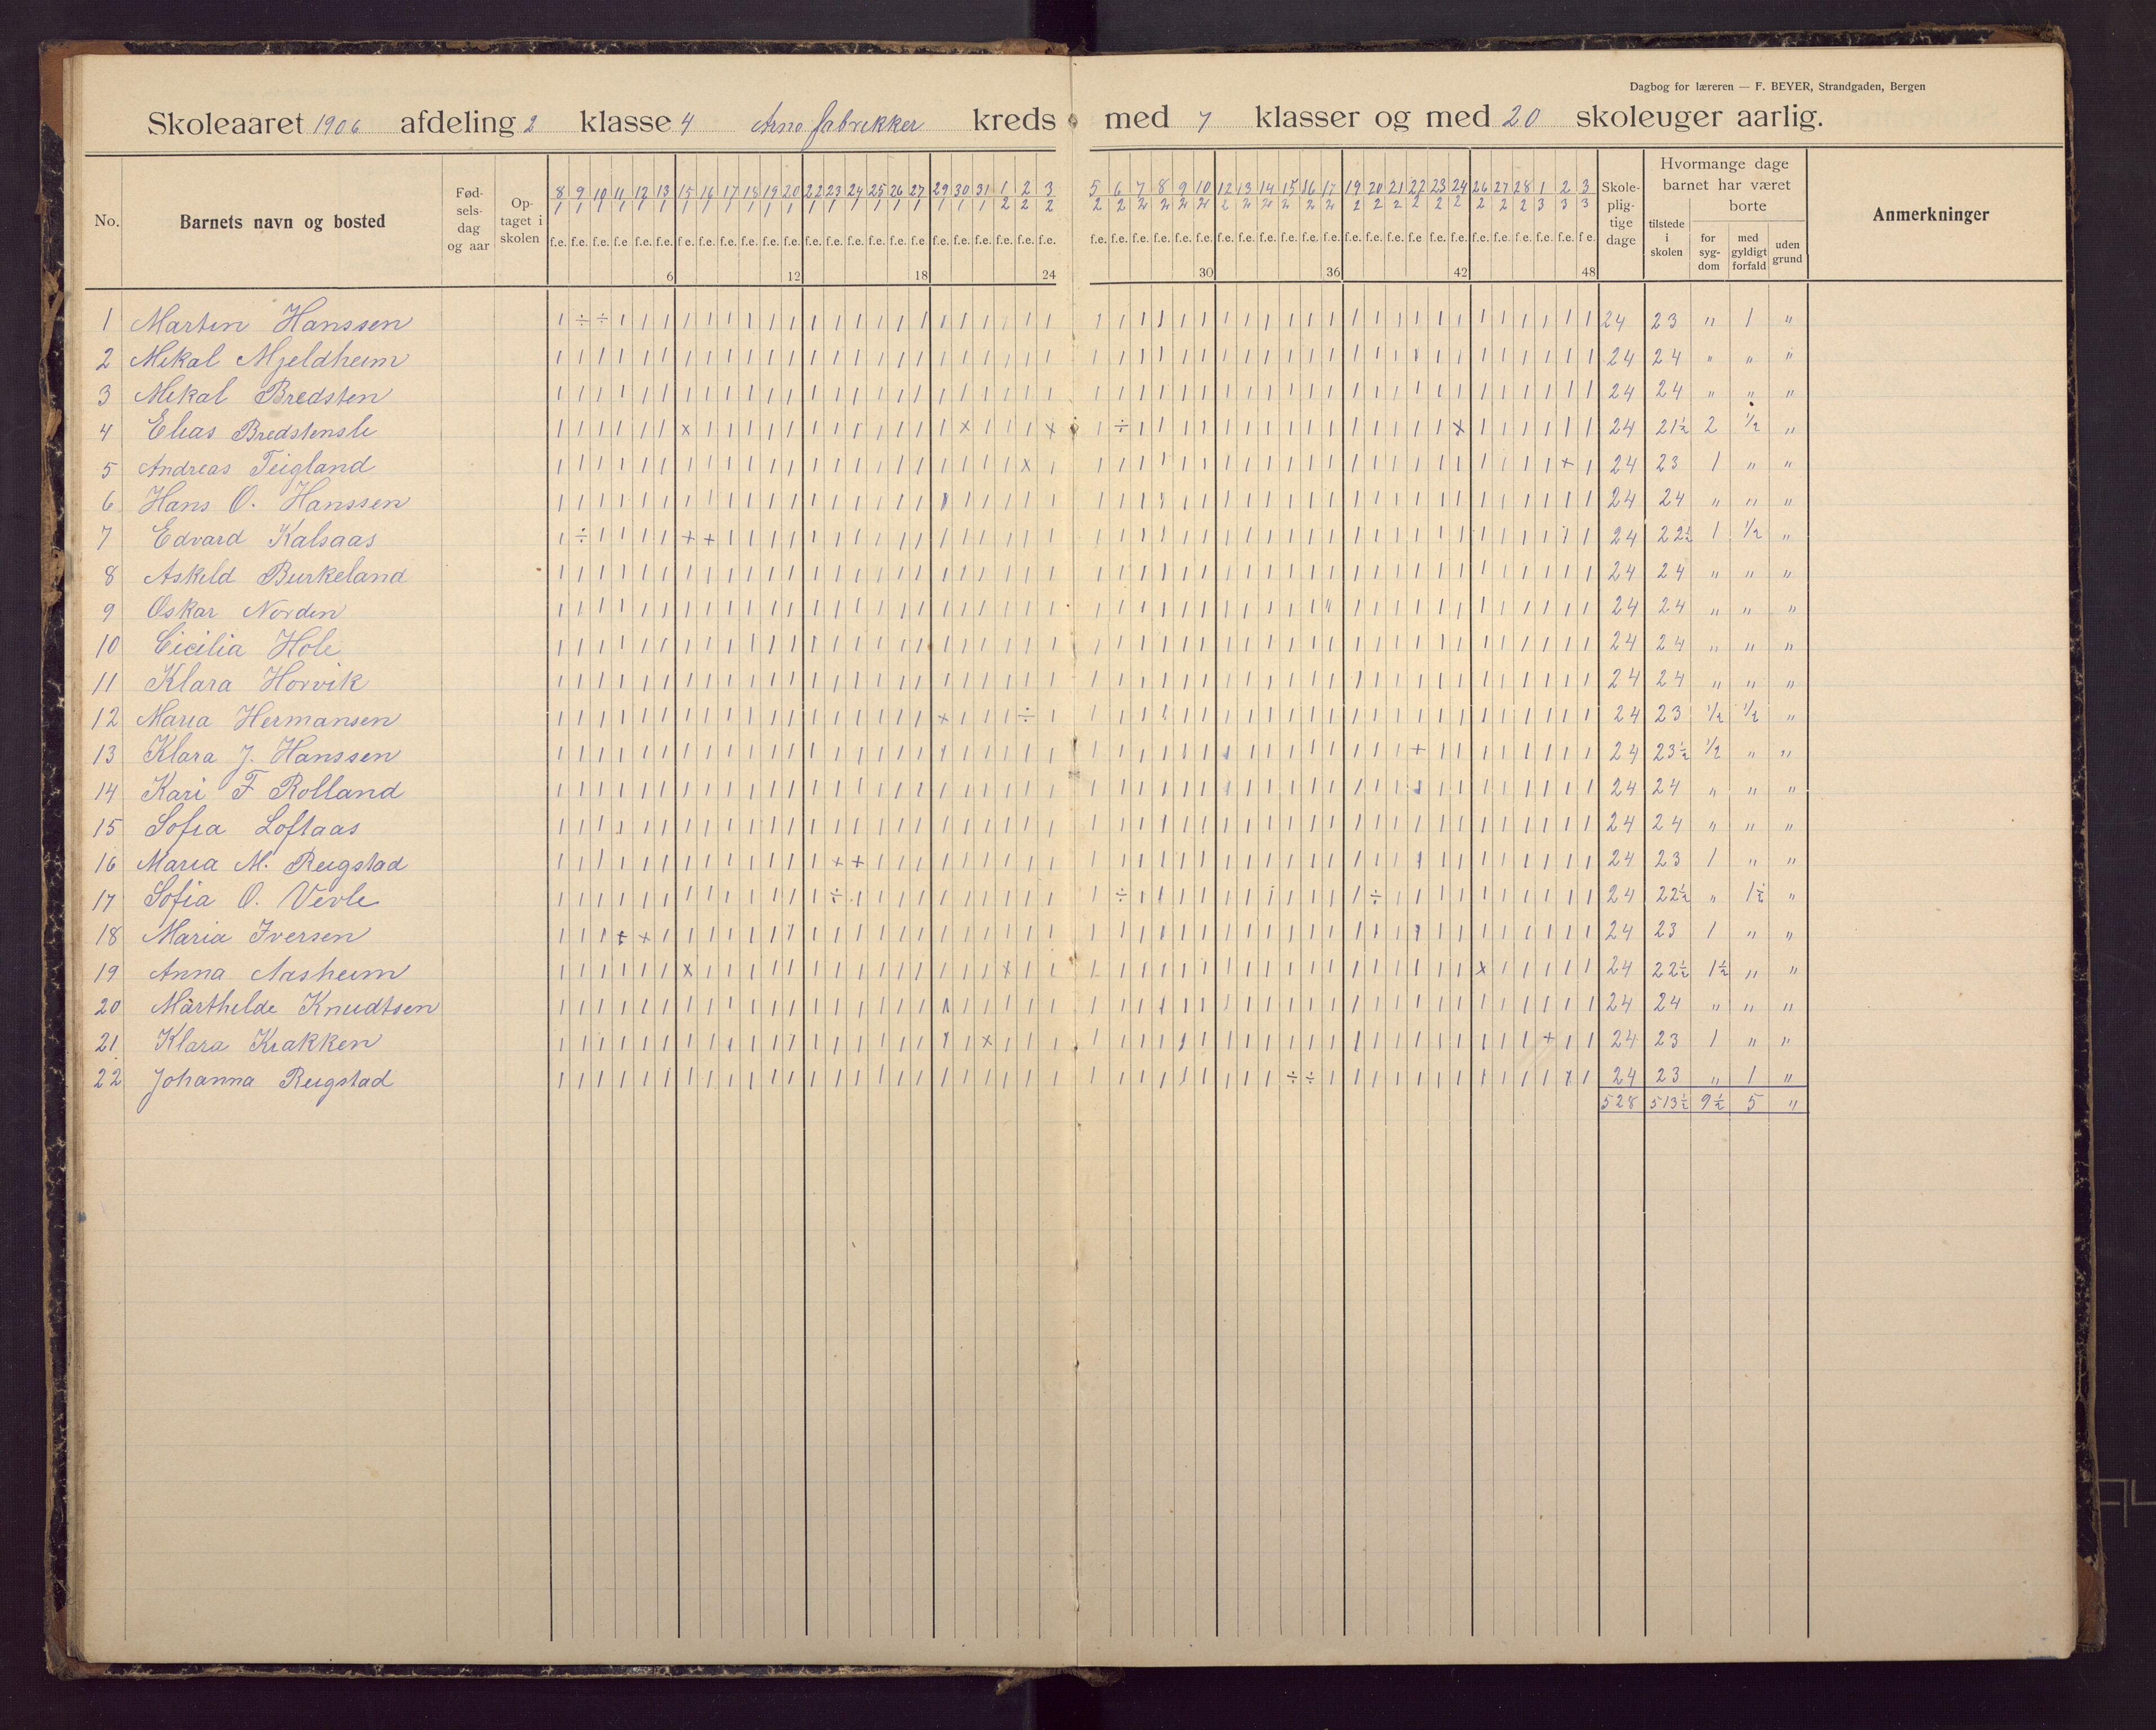 Dagbog for læreren — F. BEYER, Strandgaden, Bergen
Skoleaaret 1906 afdeling 2 klasse 4 Arne fabrikker kreds med 7 klasser og med 20 skoleuger aarlig.
No. Barnets navn og bosted Fød-sels-dag og aar Op-taget i skolen Skole-plig-tige dage Hvormange dage barnet har været tilstede i skolen borte for syg-dom med gyldigt forfald uden grund Anmerkninger
8/1 9/1 10/1 11/1 12/1 13/1 15/1 16/1 17/1 18/1 19/1 20/1 22/1 23/1 24/1 25/1 26/1 27/1 29/1 30/1 31/1 1/2 2/2 3/2 5/2 6/2 7/2 8/2 9/2 10/2 12/2 13/2 14/2 15/2 16/2 17/2 19/2 20/2 21/2 22/2 23/2 24/2 26/2 27/2 28/2 1/3 2/3 3/3
f.e. f.e. f.e. f.e. f.e. f.e. f.e. f.e. f.e. f.e. f.e. f.e. f.e. f.e. f.e. f.e. f.e. f.e. f.e. f.e. f.e. f.e. f.e. f.e. f.e. f.e. f.e. f.e. f.e. f.e. f.e. f.e. f.e. f.e. f.e. f.e. f.e. f.e. f.e. f.e. f.e. f.e. f.e. f.e. f.e. f.e. f.e. f.e.
6 12 18 24 30 36 42 48
1 Martin Hanssen 24 23 " 1 "
2 Mikal Mjeldheim 24 24 " " "
3 Mikal Bredsten 24 24 " " "
4 Elias Bredstensli 24 21½ 2 ½ "
5 Andreas Teigland 24 23 1 " "
6 Hans O. Hanssen 24 24 " " "
7 Edvard Kalsaas 24 22½ 1 ½ "
8 Askild Burkeland 24 24 " " "
9 Oskar Norden 24 24 " " "
10 Cicilia Hole 24 24 " " "
11 Klara Horvik 24 24 " " "
12 Maria Hermansen 24 23 ½ ½ "
13 Klara J. Hanssen 24 23½ ½ " "
14 Kari F Rolland 24 24 " " "
15 Sofia Loftaas 24 24 " " "
16 Maria M. Reigstad 24 23 1 " "
17 Sofia O. Vevle 24 22½ " 1½ "
18 Maria Iversen 24 23 1 " "
19 Anna Aasheim 24 22½ 1½ " "
20 Marthilde Knudtsen 24 24 " " "
21 Klara Krakken 24 23 1 " "
22 Johanna Reigstad 24 23 " 1 "
528 513½ 9½ 5 "